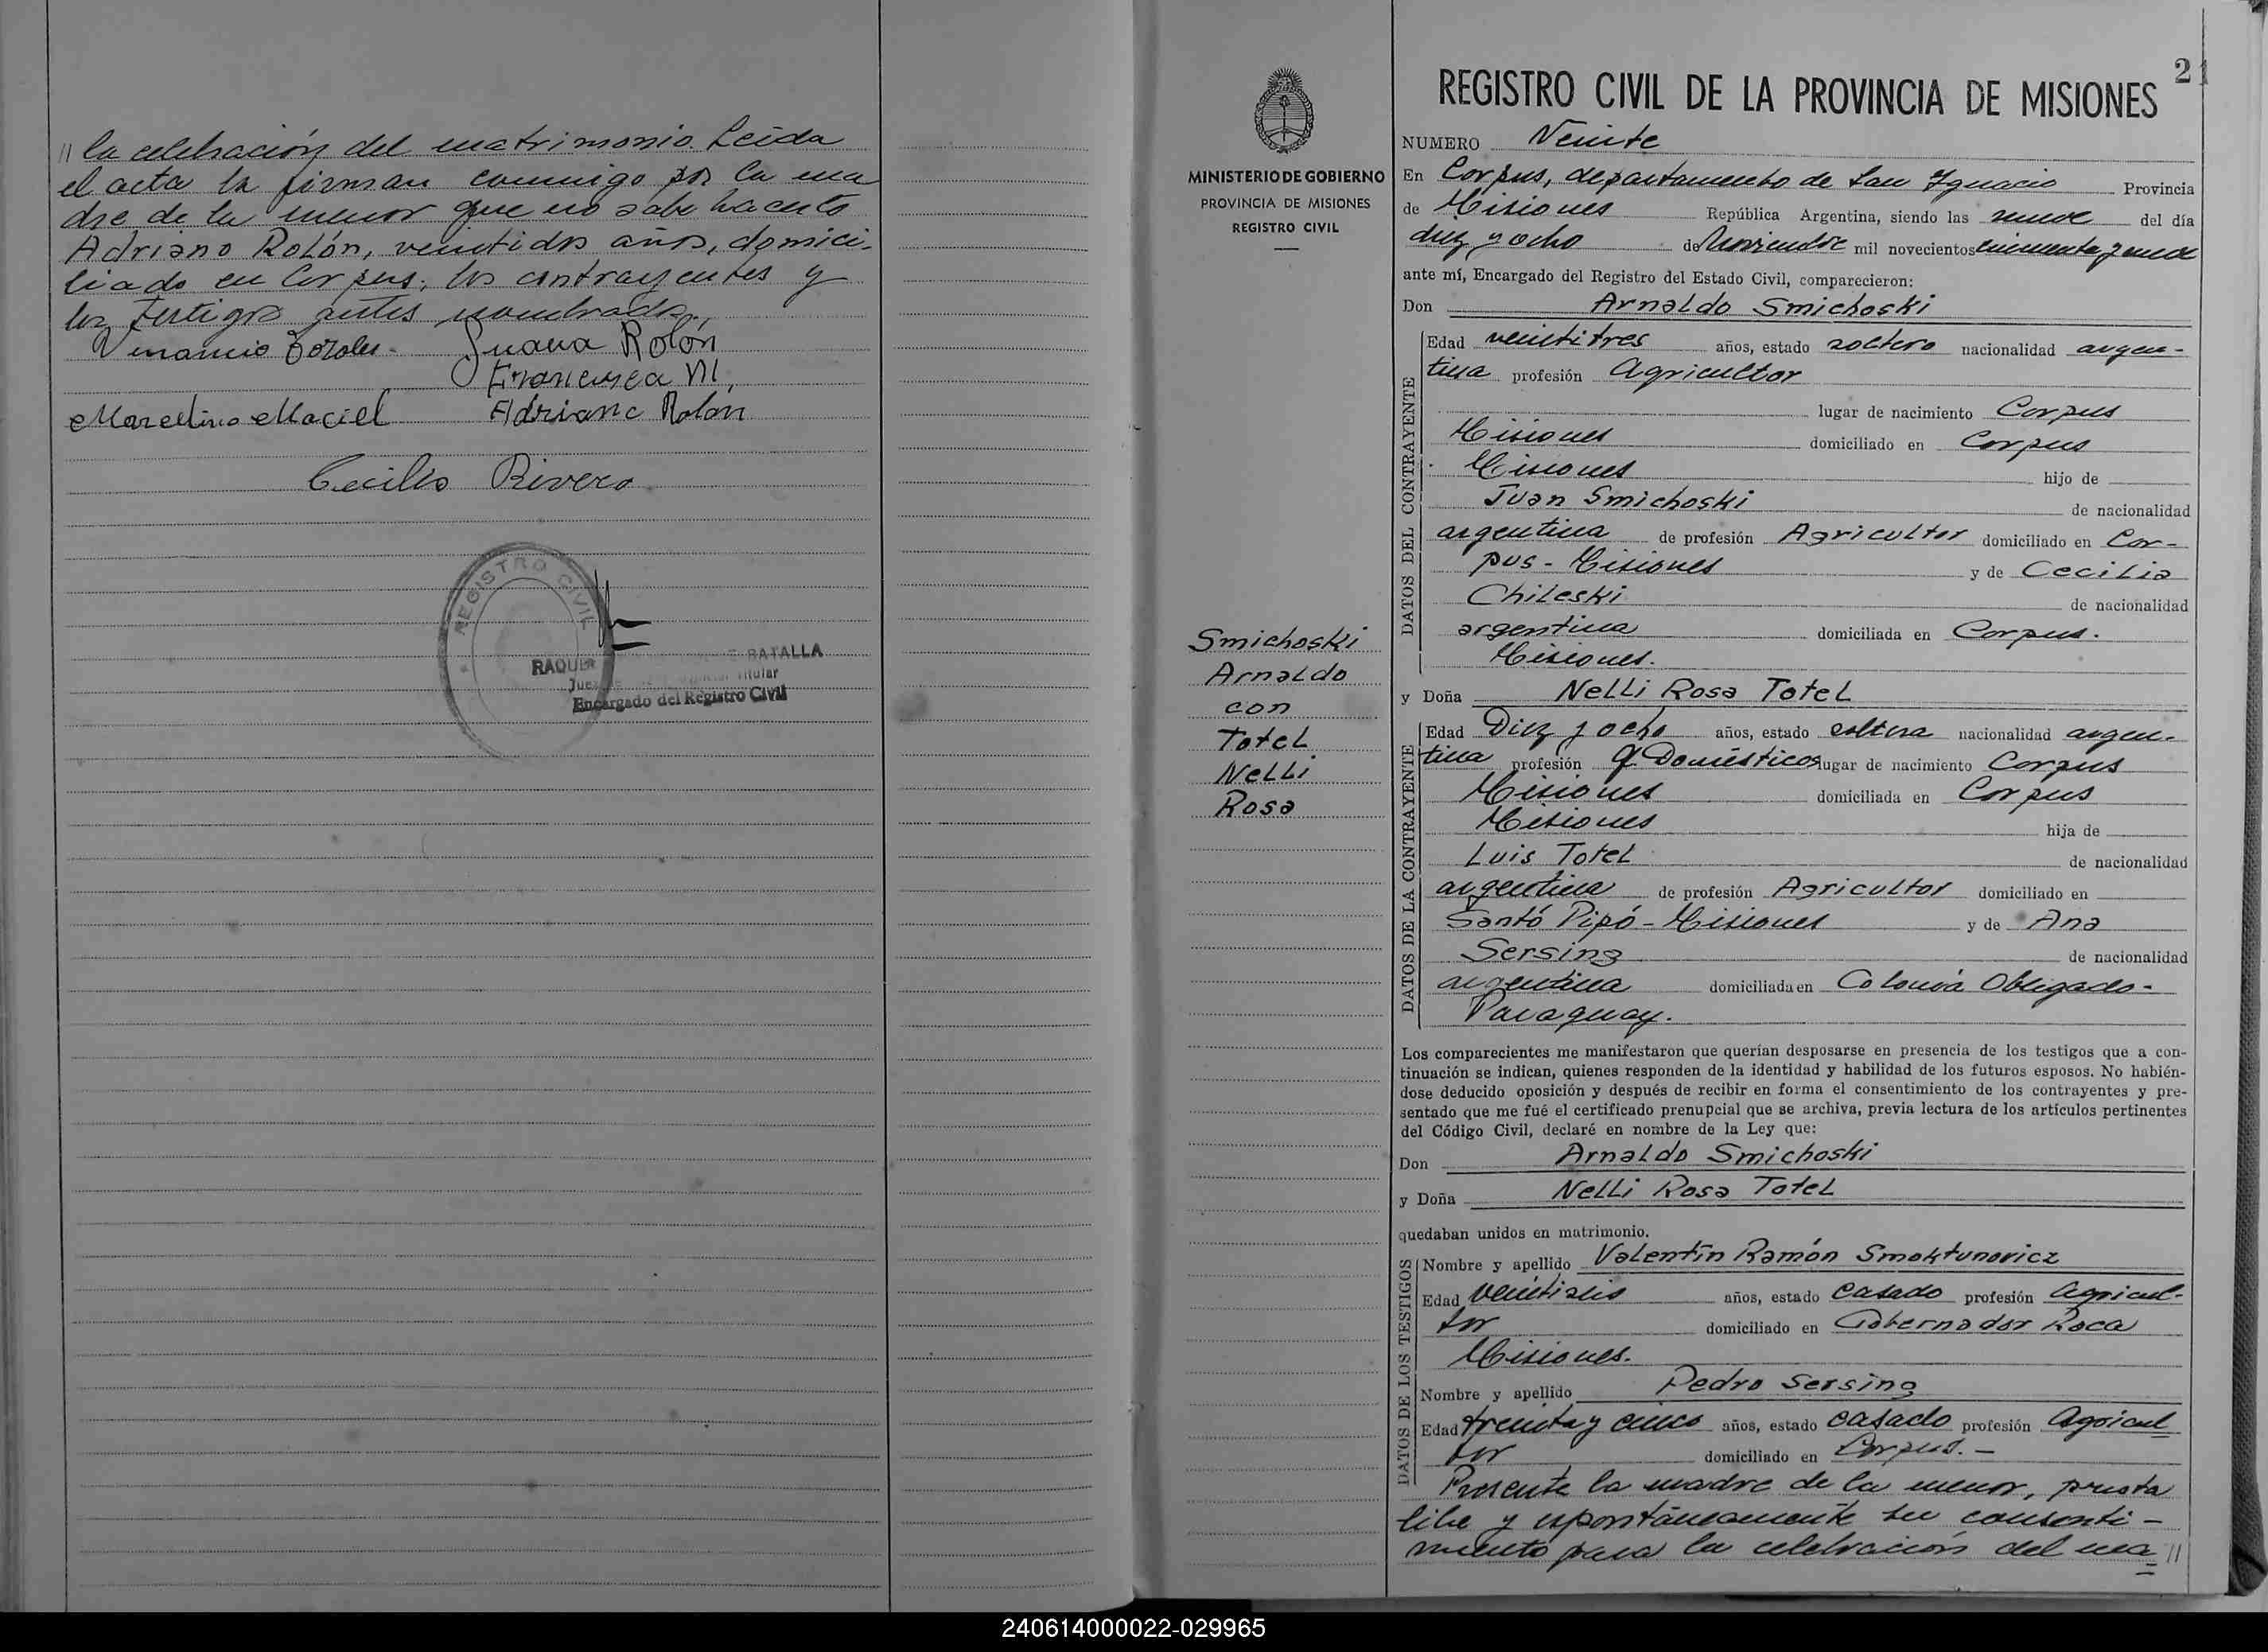 // la celebración del matrimonio. Leída
el acta la firman conmigo por la ma
dre de la menor que no sabe hacerlo
Adriano Rolón, veintidos años, domici-
liado en Corpus; los contrayentes y
los testigos antes nombrados.
Juana Rolón
Francisca M.
Marcelino Maciel Adriano Rolón
Cecilio Rivero
REGISTRO CIVIL
RAQUEL BATALLA
Titular
Encargado del Registro Civil
MINISTERIO DE GOBIERNO
PROVINCIA DE MISIONES
REGISTRO CIVIL
Smichoski
Arnaldo
con
Totel
Nelli
Rosa
21
REGISTRO CIVIL DE LA PROVINCIA DE MISIONES
NUMERO Veinte
En Corpus, departamento de San Ignacio Provincia
de Misiones República Argentina, siendo las nueve del día
diez y ocho de Noviembre mil novecientos cincuenta y nueve
ante mí, Encargado del Registro del Estado Civil, comparecieron:
Don Arnaldo Smichoski
DATOS DEL CONTRAYENTE
Edad veintitres años, estado soltero nacionalidad argen-
tina profesión Agricultor
lugar de nacimiento Corpus
Misiones domiciliado en Corpus
Misiones hijo de
Juan Smichoski de nacionalidad
argentina de profesión Agricultor domiciliado en Cor-
pus - Misiones y de Cecilia
Chileski de nacionalidad
argentina domiciliada en Corpus.
Misiones.
y Doña Nelli Rosa Totel
DATOS DE LA CONTRAYENTE
Edad Diez y ocho años, estado soltera nacionalidad argen-
tina profesión Q. Domésticos lugar de nacimiento Corpus
Misiones domiciliada en Corpus
Misiones hija de
Luis Totel de nacionalidad
argentina de profesión Agricultor domiciliado en
Santó Pipó - Misiones y de Ana
Sersing de nacionalidad
argentina domiciliada en Colonia Obligado -
Paraguay.
Los comparecientes me manifestaron que querían desposarse en presencia de los testigos que a con-
tinuación se indican, quienes responden de la identidad y habilidad de los futuros esposos. No habién-
dose deducido oposición y después de recibir en forma el consentimiento de los contrayentes y pre-
sentado que me fué el certificado prenupcial que se archiva, previa lectura de los artículos pertinentes
del Código Civil, declaré en nombre de la Ley que:
Don Arnaldo Smichoski
y Doña Nelli Rosa Totel
quedaban unidos en matrimonio.
DATOS DE LOS TESTIGOS
Nombre y apellido Valentín Ramón Smoktunovicz
Edad veintiseis años, estado casado profesión Agricul-
tor domiciliado en Gobernador Roca
Misiones.
Nombre y apellido Pedro Sersing
Edad treinta y cinco años, estado casado profesión Agricul
tor domiciliado en Corpus. -
Presente la madre de la menor, presta
libre y espontáneamente su consenti-
miento para la celebración del ma //
240614000022-029965